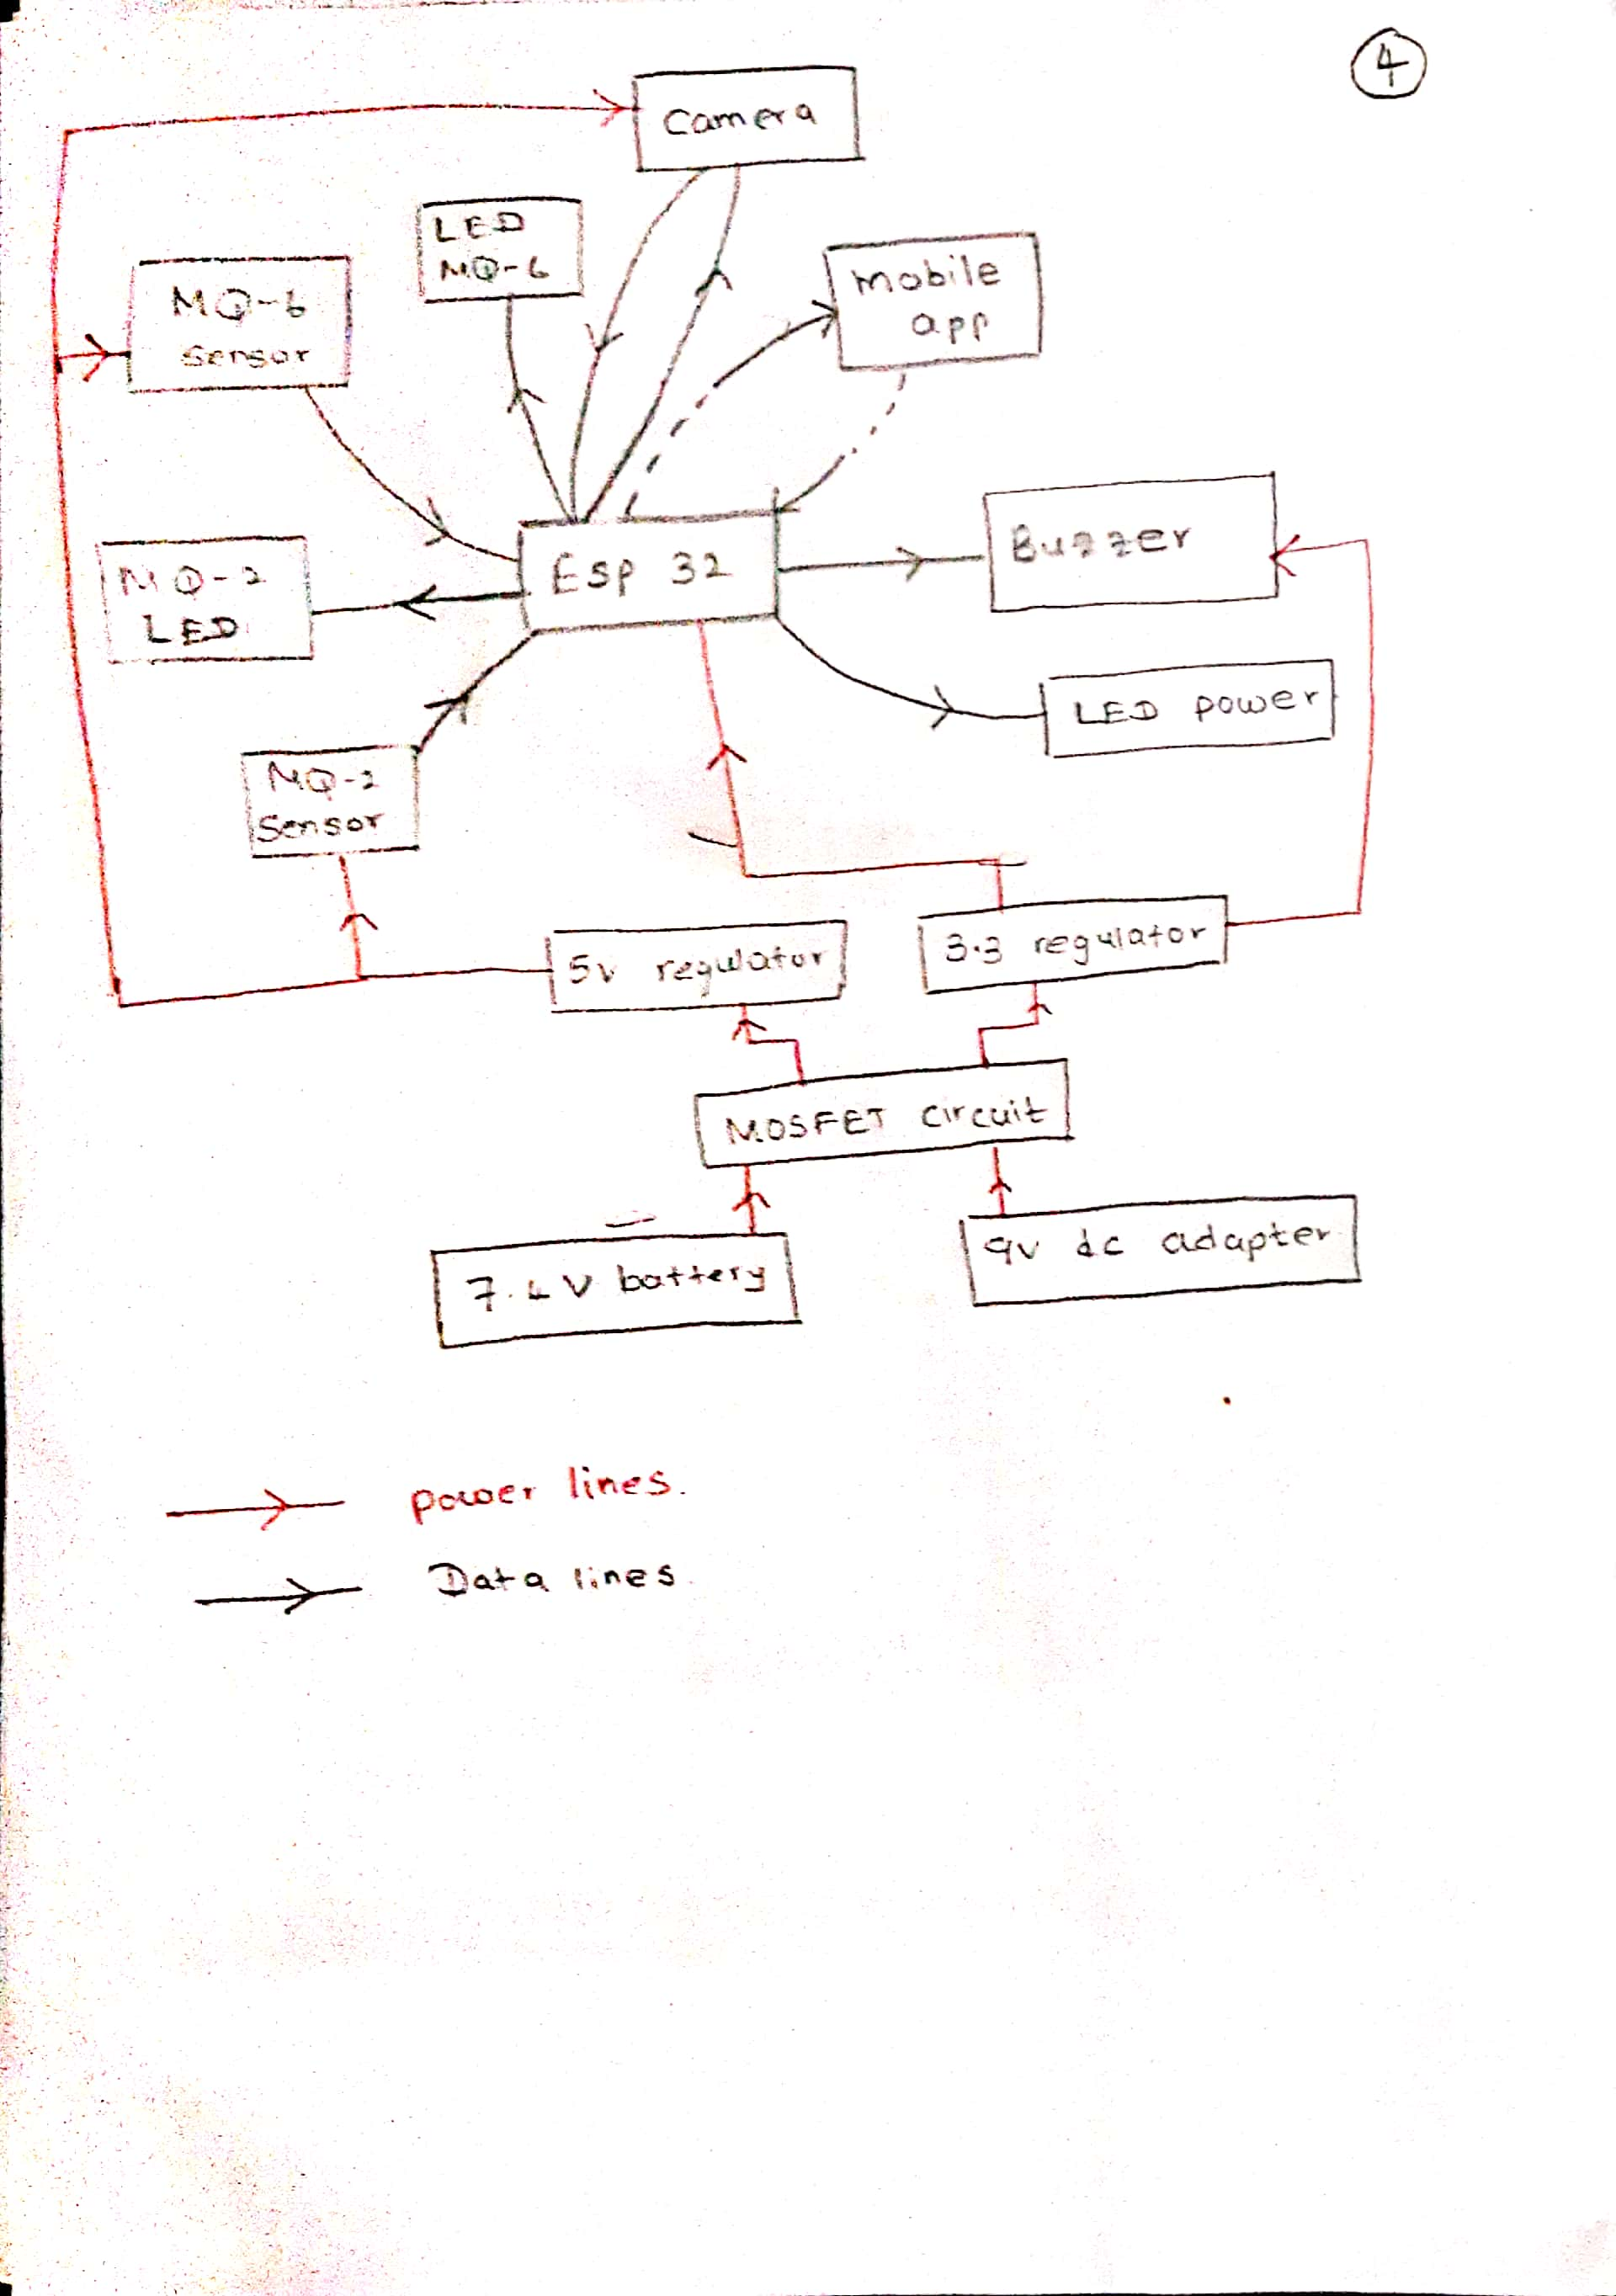 4
Camera
LED
MQ-6
Mobile
app
MQ-6
Sensor
Esp 32
Buzzer
MQ-2
LED
LED power
MQ-2
Sensor
5v regulator
3.3 regulator
MOSFET circuit
7.4 V battery
9v dc adapter
power lines.
Data lines.